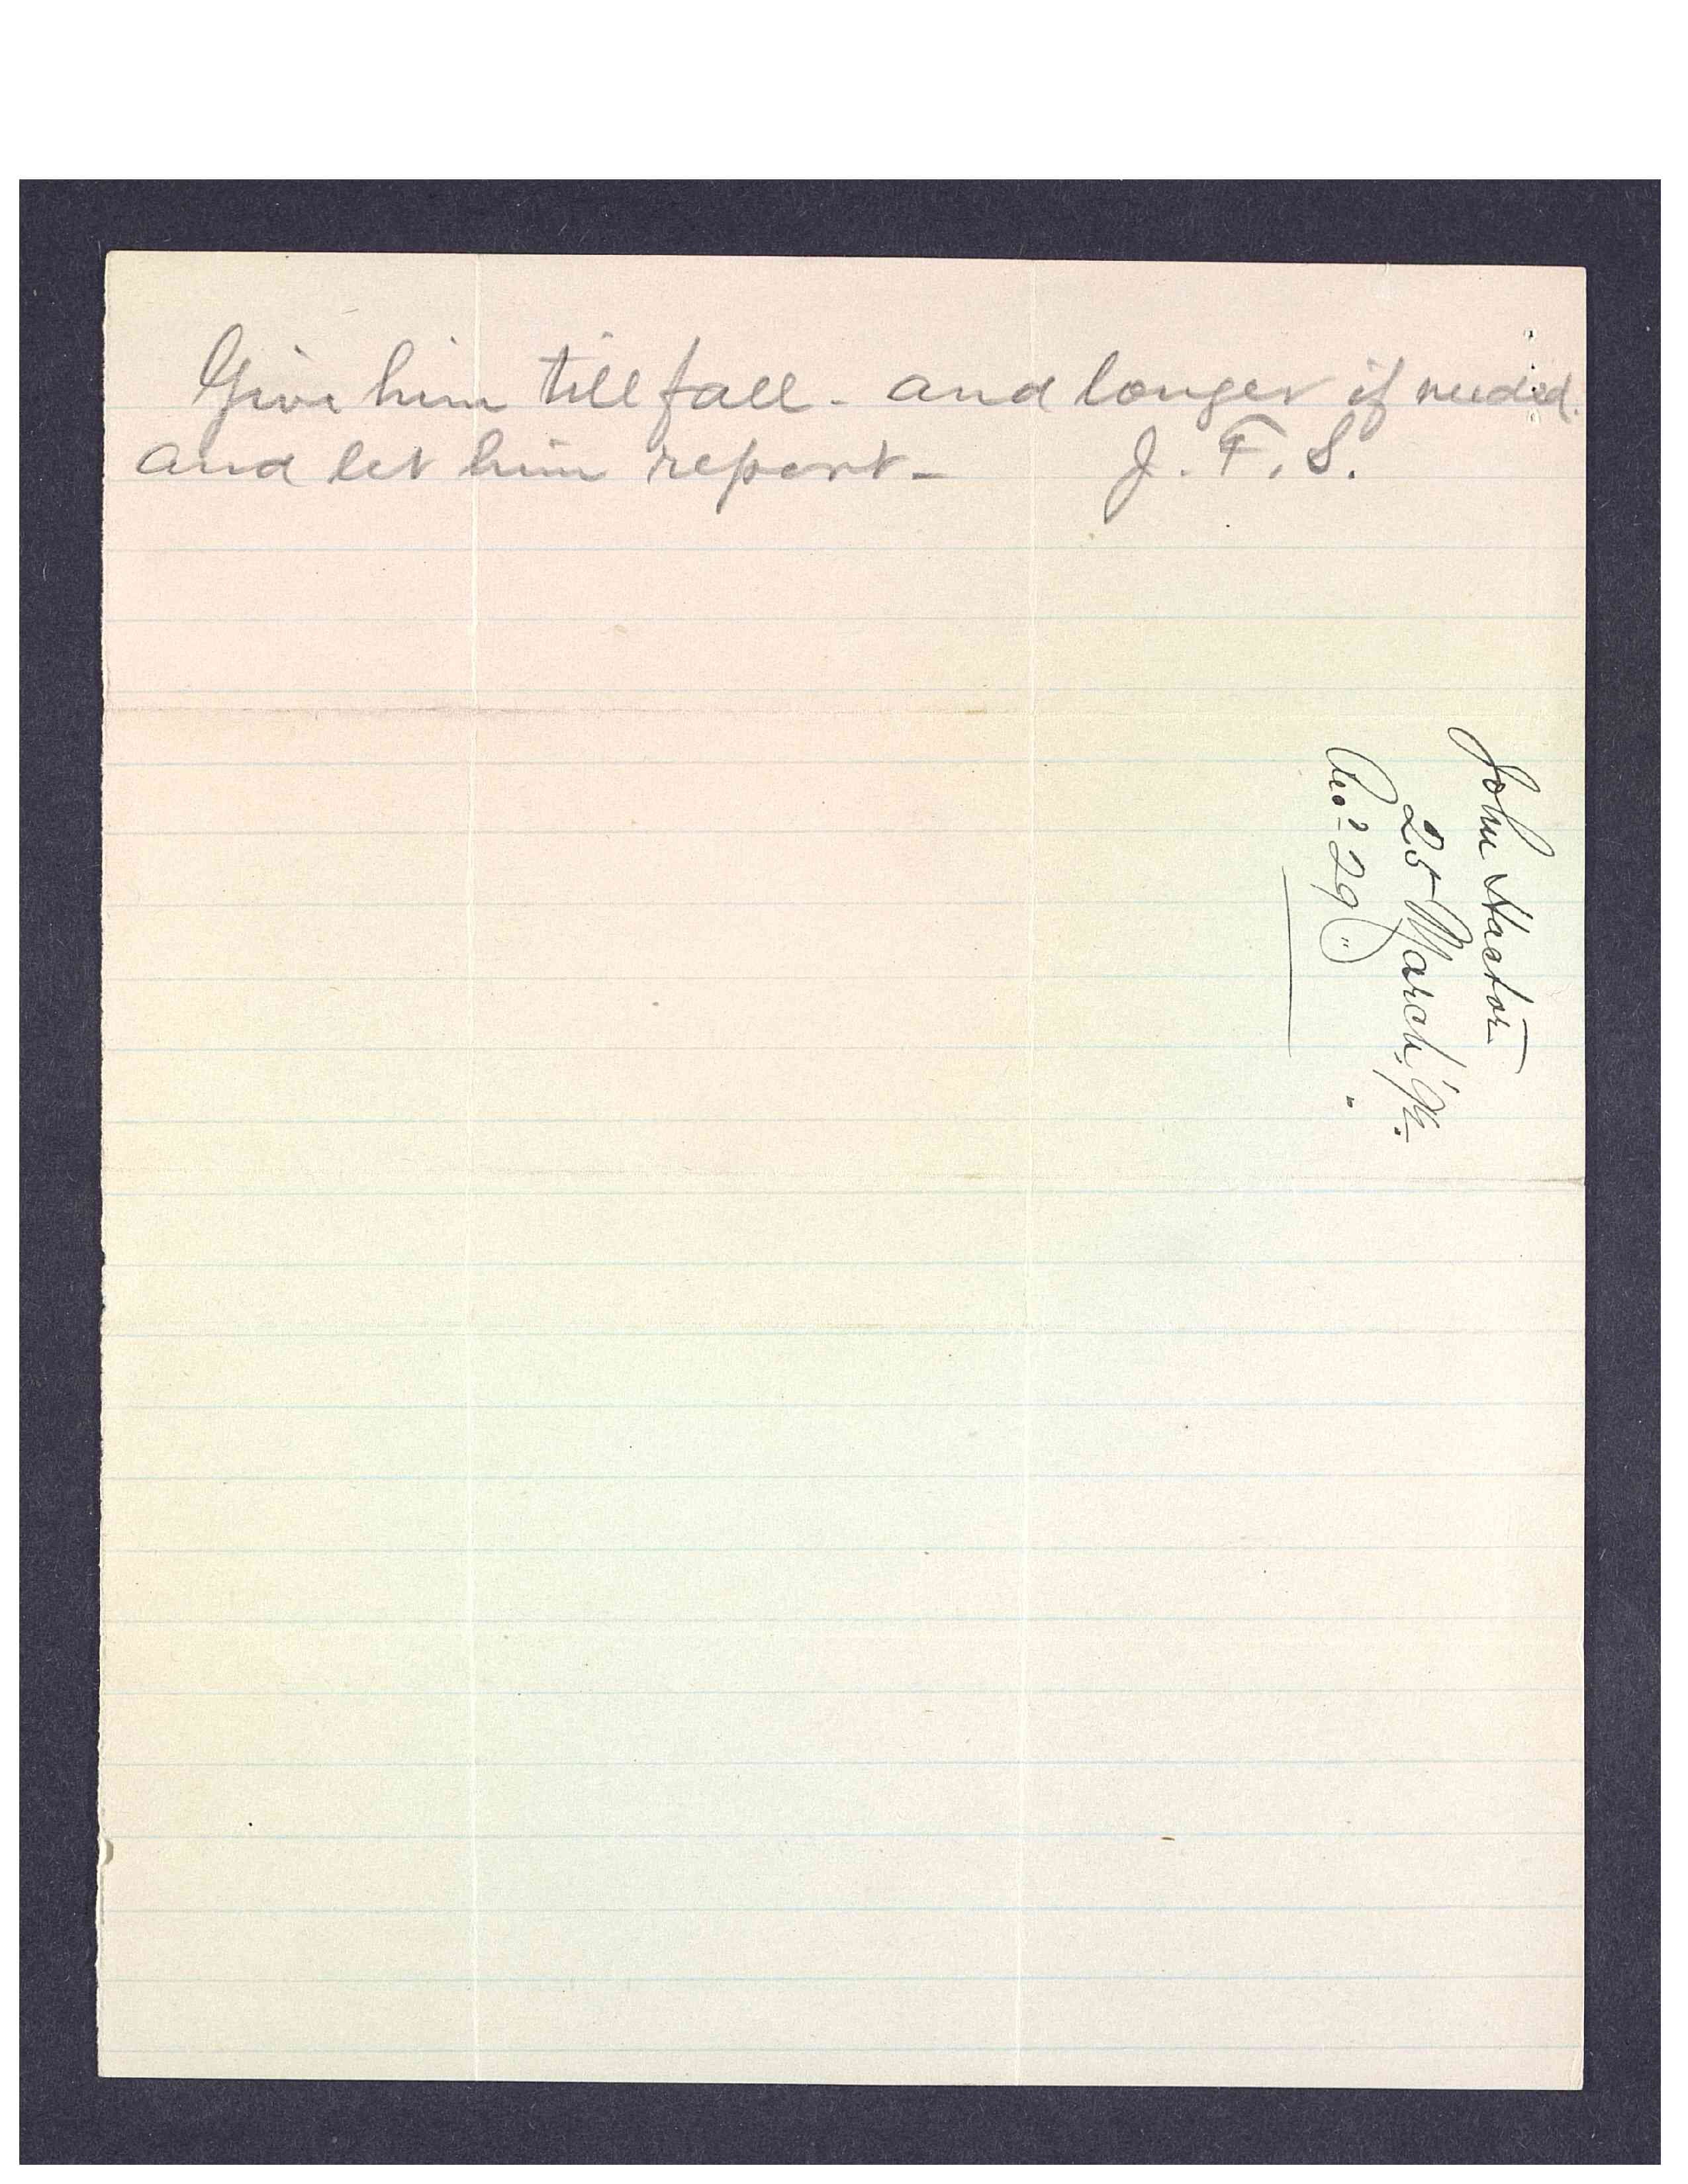 Give him till fall - and longer if needed.
and let him report - J. F. S.
John
25 March, '9
29